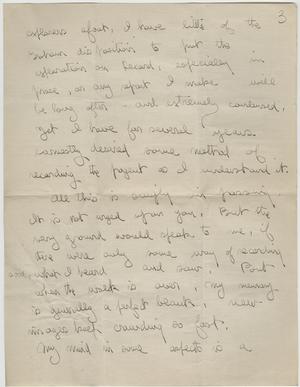 3
afoot, I have little of the
disposition to put the
on record, especially in
prose, so any report I make will
be long after - and extremely condensed.
Yet I have for several years
earnestly desired some method of
recording the pageant as I understand it.
All this is simply in passing.
It is not urged upon you. But the
very ground would speak to me, if
there were only some way of recording
what I heard and saw. But
when the walk is over, my memory
is generally a perfect blank, new
images keep crowding so fast.
My mind in some aspects is a